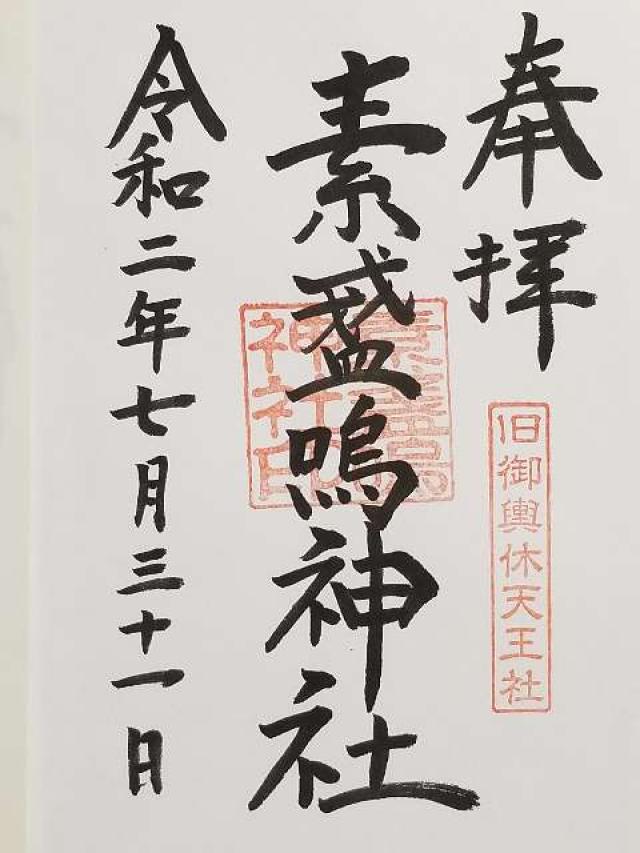 奉拝
旧御輿休天王社
素盛嗚神社
素盞嗚神社印
令和二年七月三十一日